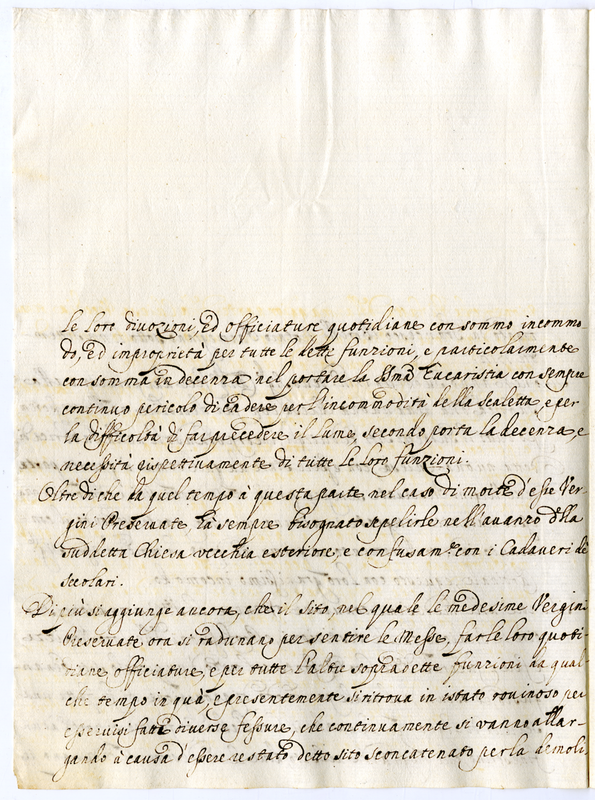 le loro divozioni, ed officiature quotidiane con sommo incommo
do, ed improprietà per tutte le dette funzioni, e particolarmente
con somma indecenza nel portare la Ssma Eucaristia con sempre
continuo pericolo di cadere per l'incommodità della scaletta, e per
la difficoltà di far precedere il lume, secondo porta la decenza, e
necessità rispettivamente di tutte le loro funzioni.
Oltre di che da quel tempo à questa parte nel caso di morte d'esse Ver-
gini Preservate, hà sempre bisognato sepelirle nell'avanzo della
suddetta Chiesa vecchia esteriore, e confusam.te con i Cadaveri de
secolari.
Di più si aggiunge ancora, che il sito, nel quale le medesime Vergini
Preservate ora si radunano per sentire le Messe, far le loro quoti-
diane officiature, e per tutte l'altre sopradette funzioni da qual-
che tempo in quà, e presentemente si ritrova in istato rovinoso per
esservisi fatte diverse fessure, che continuamente si vanno allar-
gando à causa d'essere restato detto sito sconcatenato per la demoli